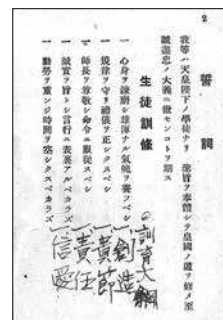 2
誓詞
我等ハ天皇陛下ノ學徒ナリ 聖旨ヲ奉體シテ皇國ノ道ヲ修メ至
誠盡忠ノ大義ニ徹センコトヲ期ス
生徒訓條
一 心身ヲ鍊磨シ雄渾ナル氣魄ヲ養フベシ
一 規律ヲ守リ禮儀ヲ正シクスベシ
一 師長ヲ尊敬シ命令ニ服從スベシ
一 誠實ヲ旨トシ言行ニ表裏アルベカラズ
一 勤勞ヲ重ンジ時間ヲ空シクスベカラズ
訓育大綱
一、創造
一、責節
一、責任
一、信愛